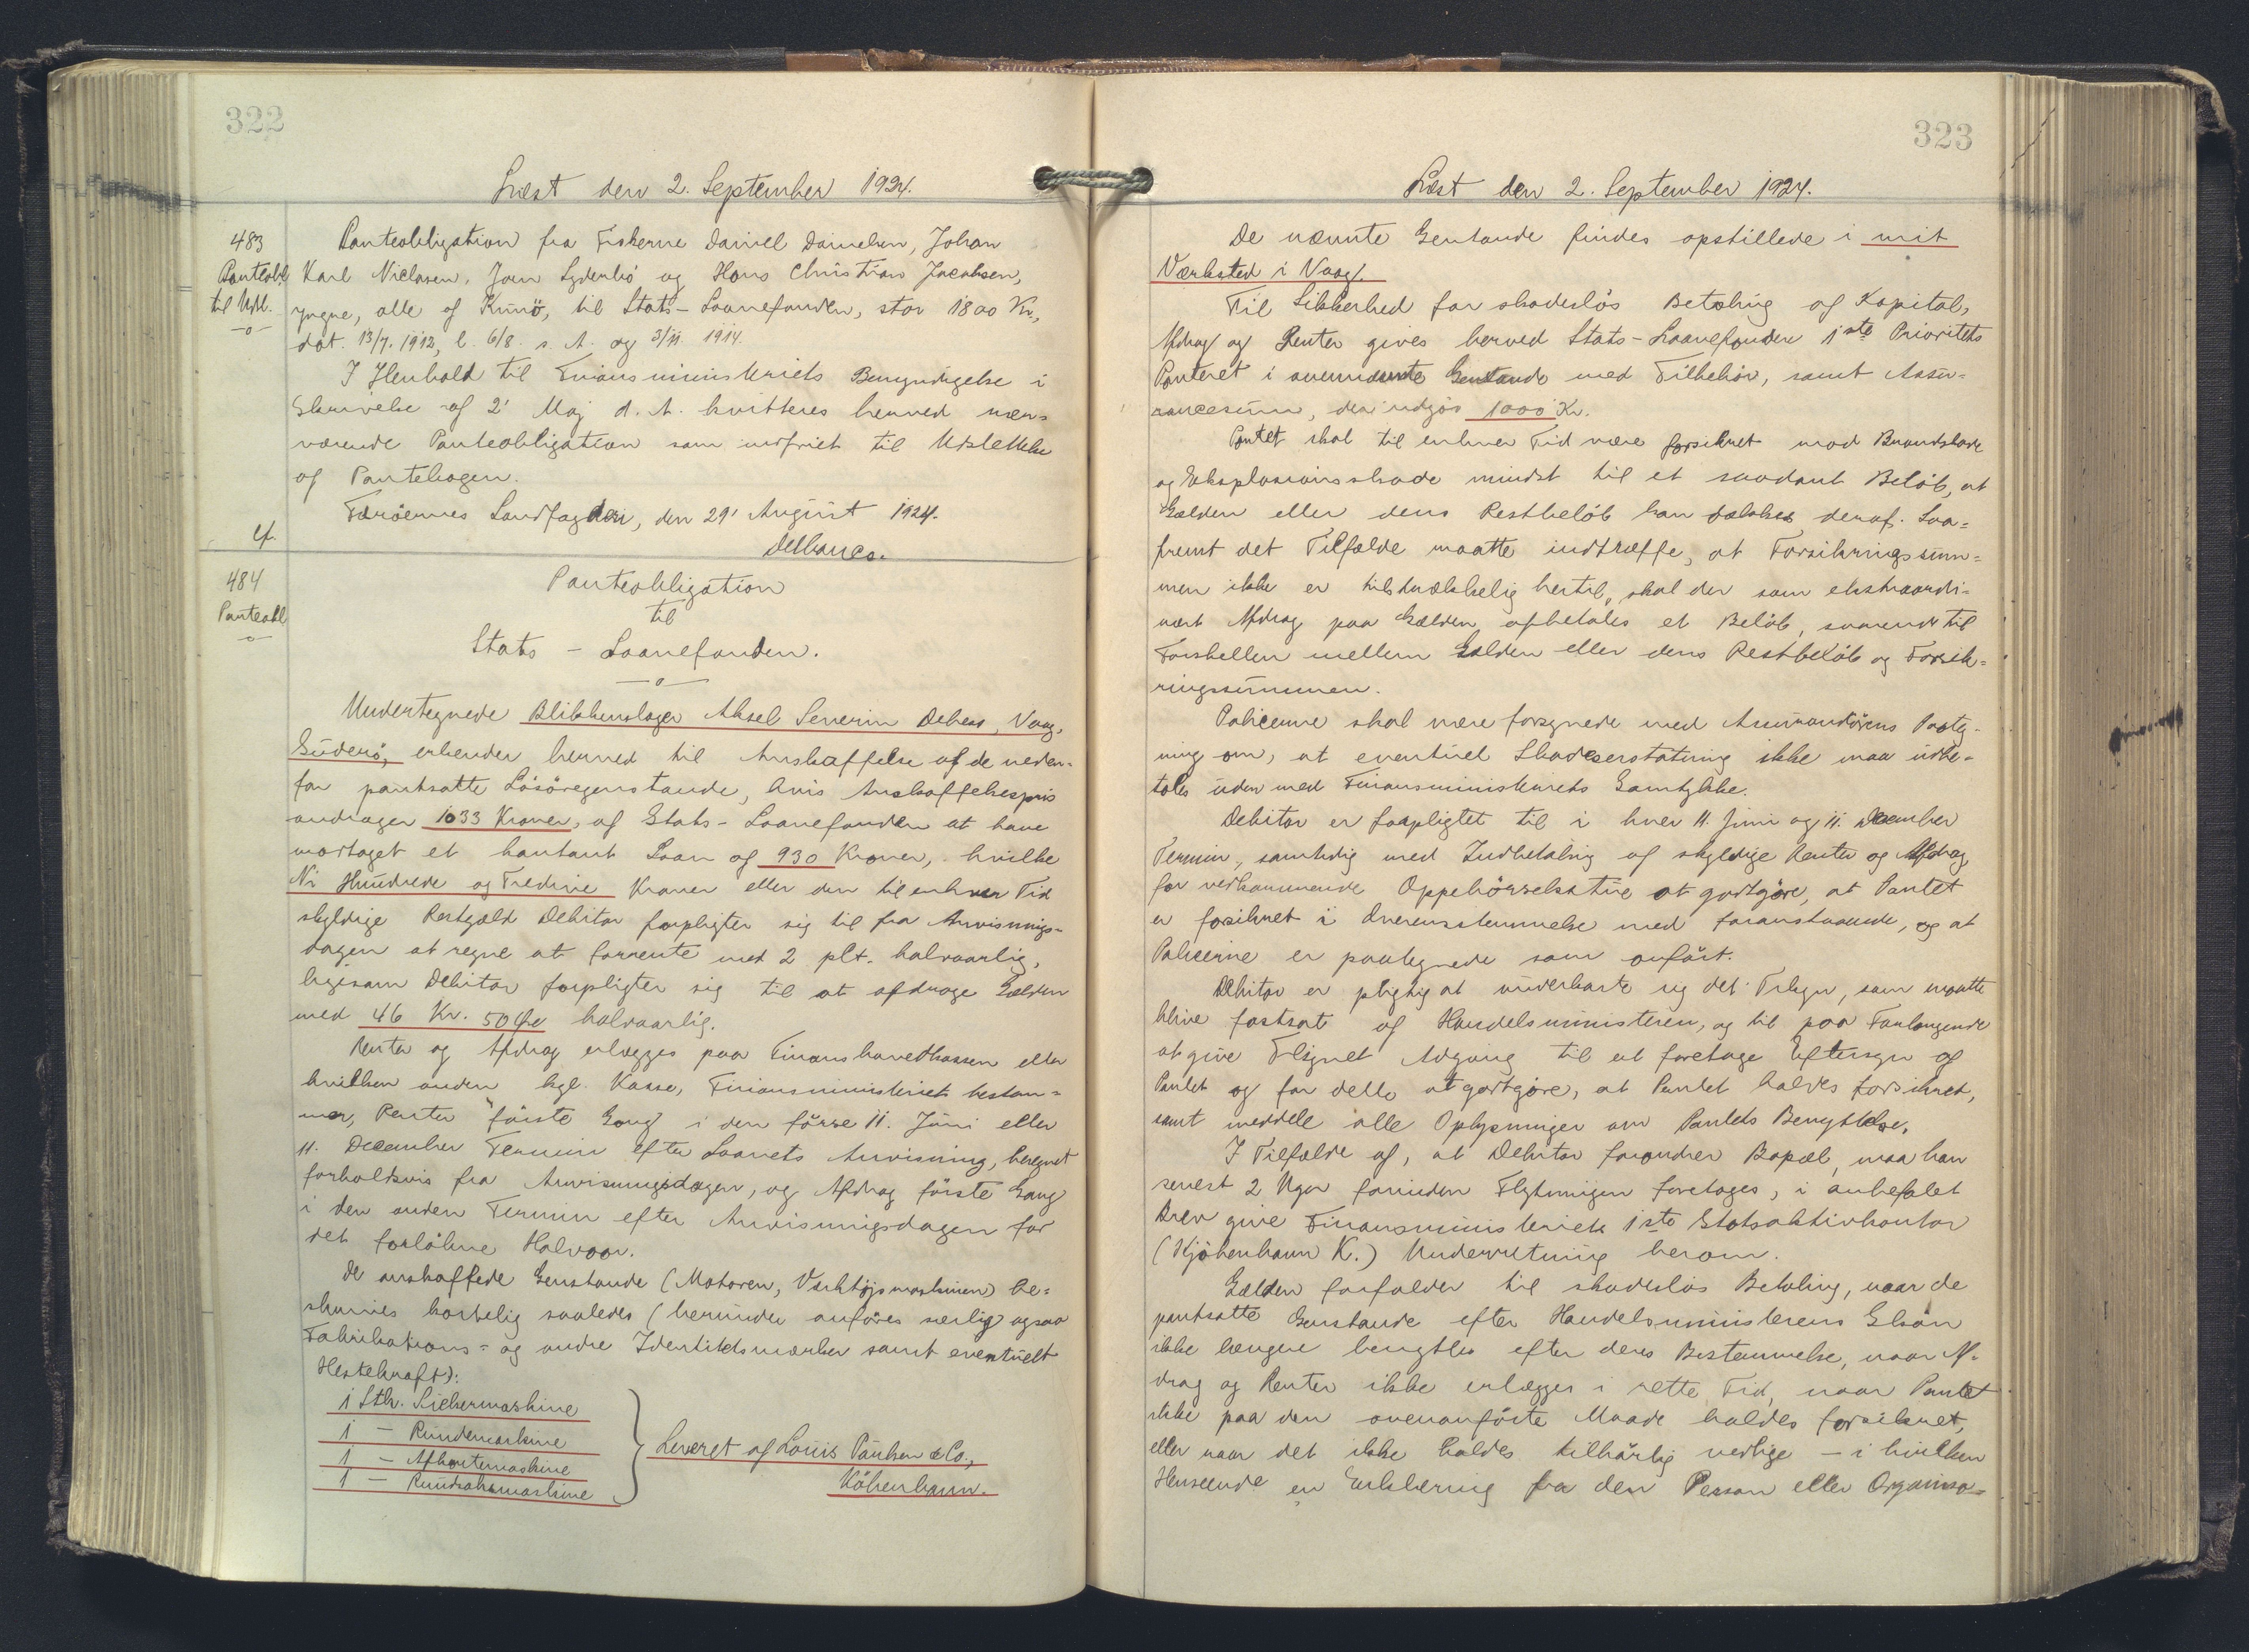 322
Læst den 2. September 1924.
483
Panteobl.
til Udsl.
Panteobligation fra Fiskerne Daniel Danielsen, Johan
Karl Niclasen, Joen Lydersbö og Hans Christian Jacobsen,
yngre, alle af Kunö, til Stats-Laanefonden, stor 1800 Kr.,
dat. 13/7. 1912, l. 6/8. s. A. og 3/11 1914.
I Henhold til Finansministeriets Bemyndigelse i
Skrivelse af 2' Maj d. A. kvitteres herved nær-
værende Panteobligation som indfriet til Udslettelse
af Pantebogen.
Færöernes Landfogderi, den 29' August 1924.
484
Panteobl
Panteobligation
til
Stats - Laanefonden.
Undertegnede Blikkenslager Aksel Severin Debess, Vaag,
Suderö, erkender herved til Anskaffelse af de neden-
for pantsatte Lösöregenstande, hvis Anskaffelsespris
andrager 1033 Kroner, af Stats-Laanefonden at have
modtaget et kontant Laan af 930 Kroner, hvilke
Ni Hundrede og Tredive Kroner eller den til enhver Tid
skyldige Restgæld Debitor forpligter sig til fra Anvisnings-
dagen at regne at forrente med 2 pCt. halvaarlig,
ligesom Debitor forpligter sig til at afdrage Gælden
med 46 Kr. 50 Øre halvaarlig.
Renter og Afdrag erlægges paa Finanshovedkassen eller
hvilken anden kgl. Kasse, Finansministeriet bestem-
mer, Renter förste Gang i den förste 11. Juni eller
11. December Termin efter Laanets Anvisning, beregnet
forholdsvis fra Anvisningsdagen, og Afdrag förste Gang
i den anden Termin efter Anvisningsdagen for
det forløbne Halvaar.
De anskaffede Genstande (Motoren, Værktøjsmaskinen) be-
skrives kortelig saaledes (herunder anföres særlig ogsaa
Fabrikations- og andre Identitetsmærker samt eventuelt
Hestekraft):
1 Stk. Siekermaskine
1 - Rundemaskine
1 - Afkantemaskine
1 - Rundsaksmaskine
Leveret af Louis Poulsen & Co.,
Köbenhavn.
323
Læst den 2. September 1924.
De nævnte Genstande findes opstillede i mit
Værksted i Vaag.
Til Sikkerhed for skadeslös Betaling af Kapital,
Afdrag og Renter gives herved Stats-Laanefonden 1ste Prioritets
Panteret i ovennævnte Genstande med Tilbehör, samt Assu-
rancesum, der udgör 1000 Kr.
Pantet skal til enhver Tid være forsikret mod Brandskade
og Eksplosionsskade mindst til et saadant Beløb, at
Gælden eller dens Restbeløb kan dækkes deraf. Saa-
fremt det Tilfælde maatte indtræffe, at Forsikringssum-
men ikke er tilstrækkelig hertil, skal der som ekstraordi-
nært Afdrag paa Gælden afbetales et Beløb, svarende til
Forskellen mellem Gælden eller dens Restbeløb og Forsik-
ringssummen.
Policerne skal være forsynede med Assurandörens Paateg-
ning om, at eventuel Skadeserstatning ikke maa udbe-
tales uden med Finansministeriets Samtykke.
Debitor er forpligtet til i hver 11. Juni og 11. December
Termin, samtidig med Indbetaling af skyldige Renter og Afdrag
for vedkommende Oppebörselsstue at godtgöre, at Pantet
er forsikret i Overensstemmelse med foranstaaende, og at
Policerne er paategnede som anfört.
Debitor er pligtig at underkaste sig det Tilsyn, som maatte
blive fastsat af Handelsministeren, og til paa Forlangende
at give Tilsynet Adgang til at foretage Eftersyn af
Pantet og for dette at godtgöre, at Pantet holdes forsikret,
samt meddele alle Oplysninger om Pantets Benyttelse.
I Tilfælde af, at Debitor forandrer Bopæl, maa han
senest 2 Uger forinden Flytningen foretages, i anbefalet
Brev give Finansministeriets 1ste Statsaktivkontor
(Kjöbenhavn K.) Underretning herom.
Gælden forfalder til skadeslös Betaling, naar de
pantsatte Genstande efter Handelsministerens Skön
ikke længere benyttes efter deres Bestemmelse, naar Af-
drag og Renter ikke erlægges i rette Tid, naar Pantet
ikke paa den ovenanførte Maade holdes forsikret,
eller naar det ikke holdes tilbörlig vedlige - i hvilken
Henseende en Erklæring fra den Person eller Organisa-